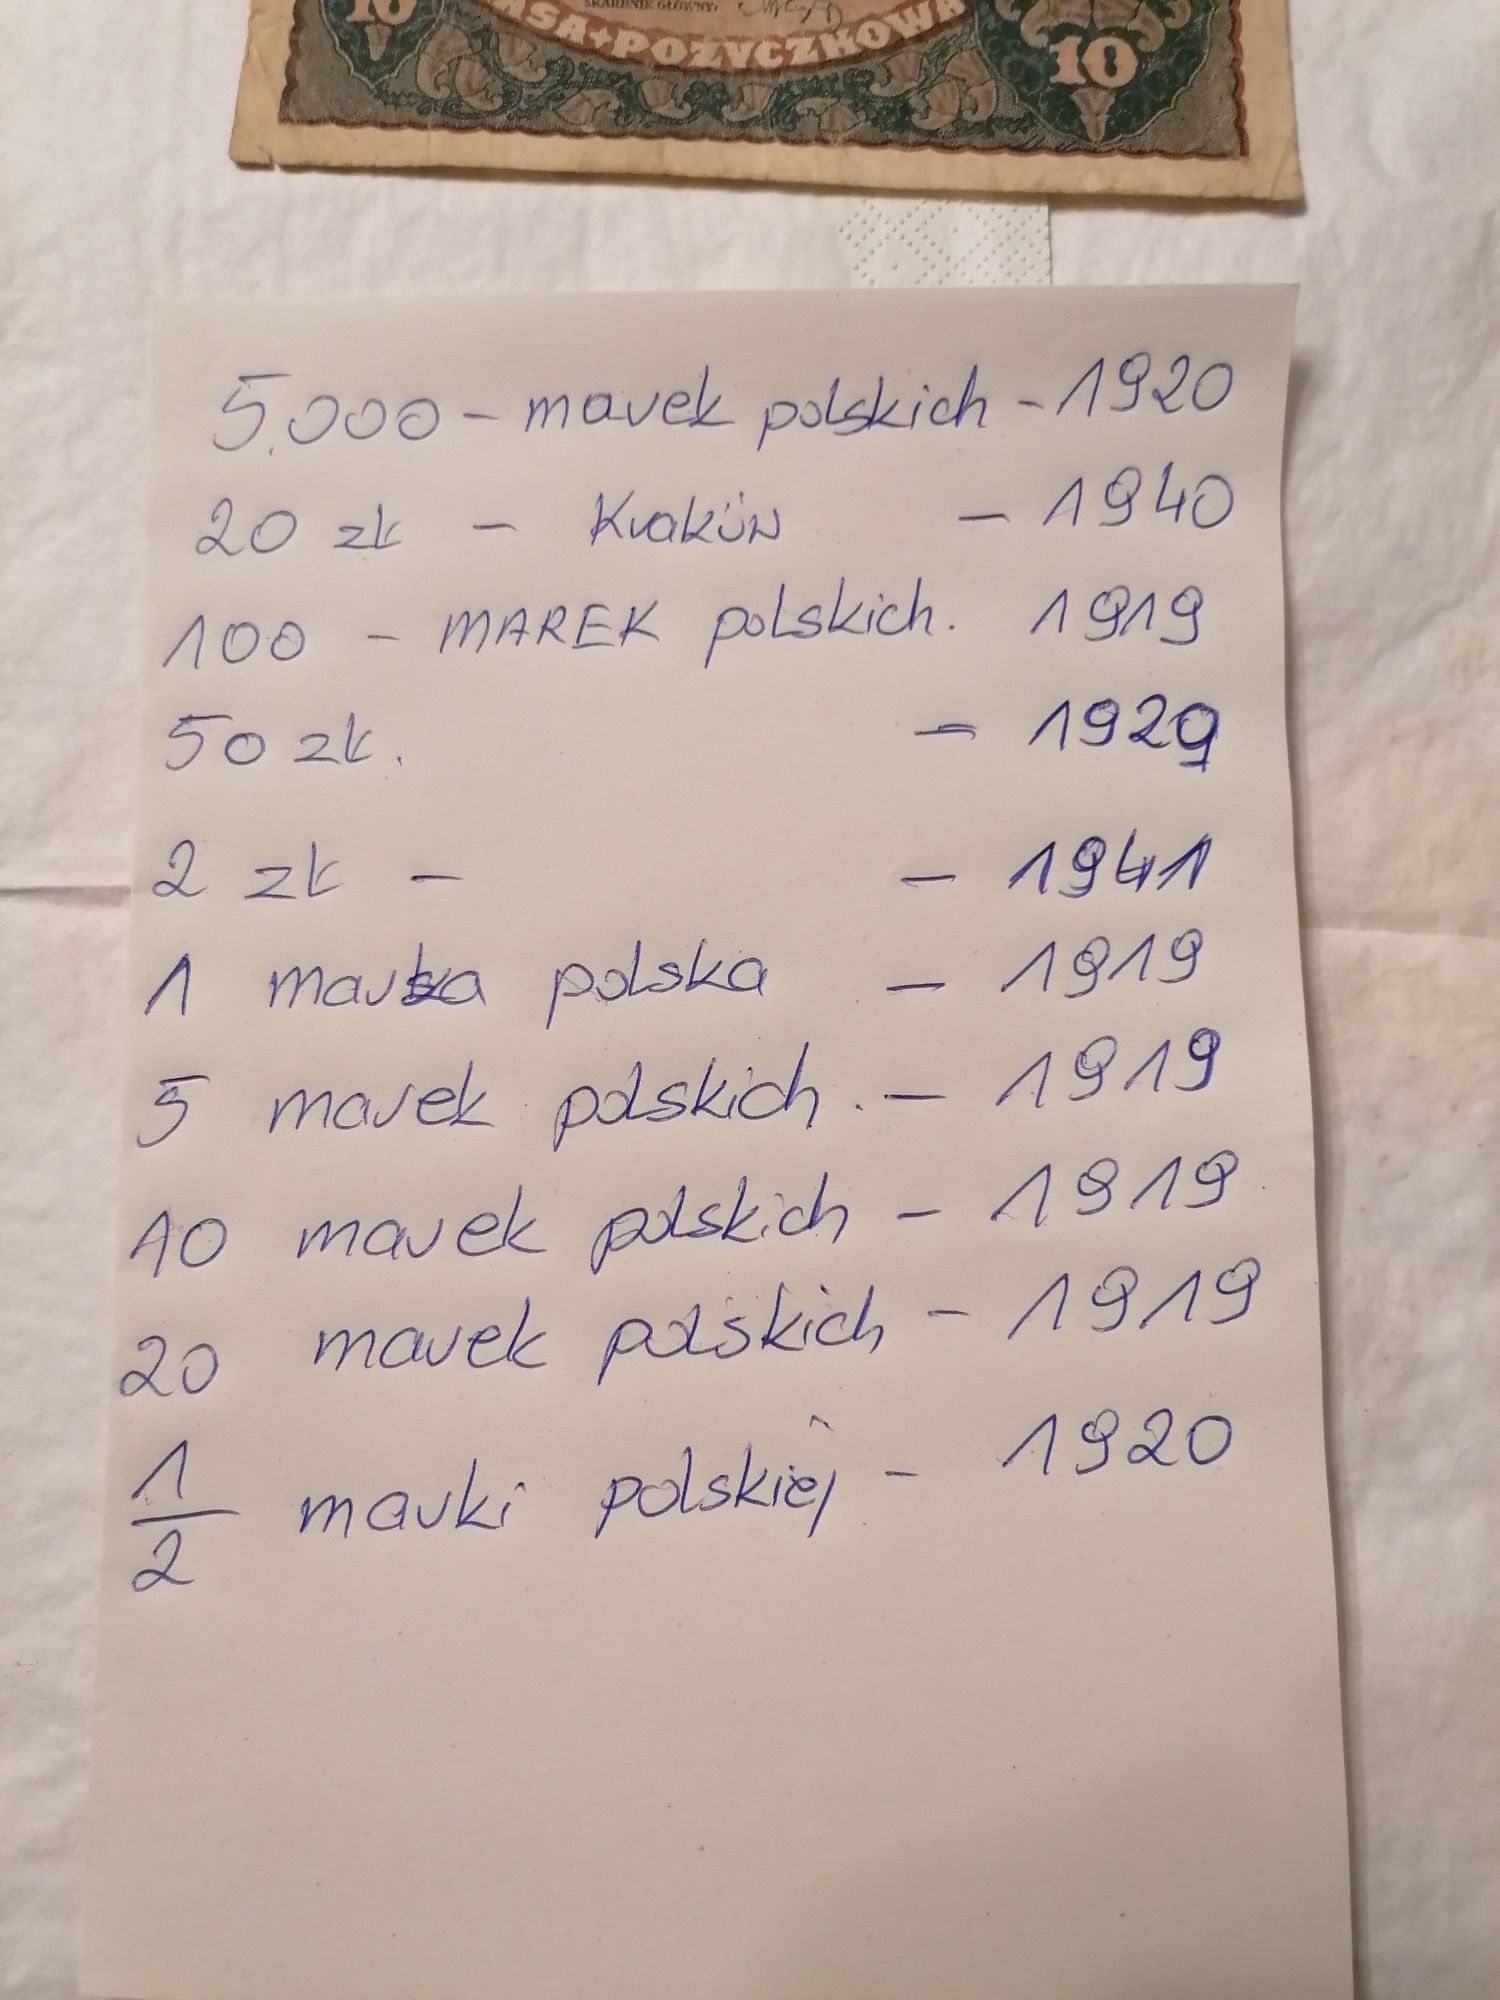 10 SKARBNIK GŁÓWNY. 10
ASA + POŻYCZKOWA
5.000 - marek polskich - 1920
20 zł - Kraków - 1940
100 - MAREK polskich. 1919
50 zł. - 1929
2 zł - - 1941
1 marka polska - 1919
5 marek polskich. - 1919
10 marek polskich - 1919
20 marek polskich - 1919
1/2 marki polskiej - 1920